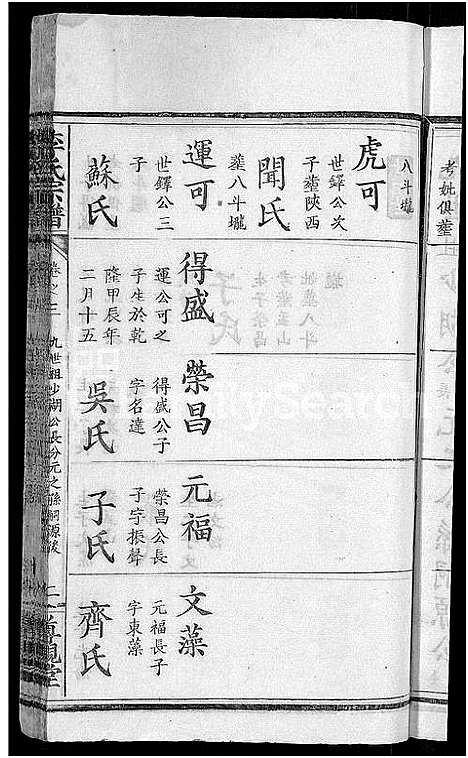 考妣俱葬
八斗壠
虎可
世鐸公次
子葬陝西
聞氏
葬八斗壠
運可
世鐸公三
子
蘇氏
得盛
運公可之
子生於乾
隆甲辰年
二月十五
榮昌
得盛公子
字名達
吳氏
元福
榮昌公長
子字振聲
子氏
文藻
元福長子
字東藻
齊氏
李氏宗譜
卷之二
九世祖少湖公長分元之孫嗣源後